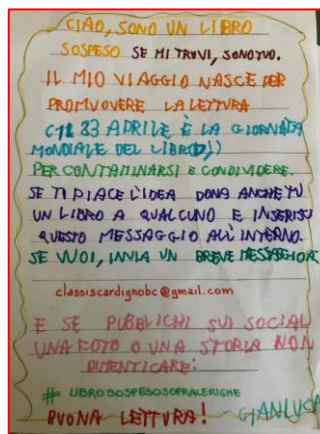 CIAO, SONO UN LIBRO
SOSPESO SE MI TROVI, SONO TUO.
IL MIO VIAGGIO NASCE PER
PROMUOVERE LA LETTURA
(IL 23 APRILE È LA GIORNATA
MONDIALE DEL LIBRO)
PER CONTAMINARSI E CONDIVIDERE.
SE TI PIACE L'IDEA DONA ANCHE TU
UN LIBRO A QUALCUNO E INSERISCI
QUESTO MESSAGGIO ALL'INTERNO.
SE VUOI, INVIA UN BREVE MESSAGGIO A:
classiscardignobc@gmail.com
E SE PUBBLICHI SUI SOCIAL
UNA FOTO O UNA STORIA NON
DIMENTICARE:
# LIBROSOSPESOSOPRALERIGHE
BUONA LETTURA! GIANLUCA